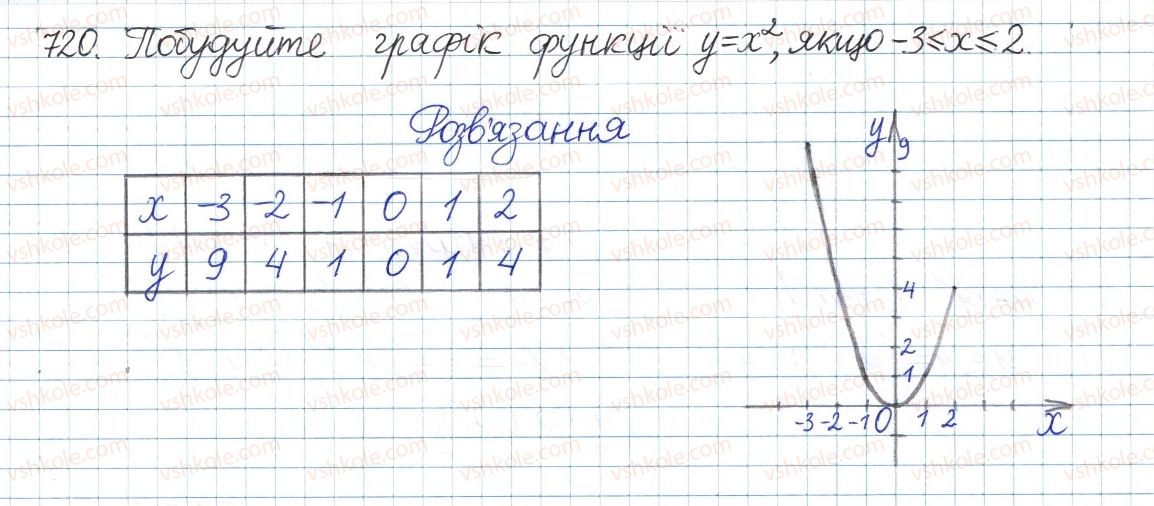 720. Побудуйте графік функції y=x², якщо -3≤x≤2.
Розв'язання
x -3 -2 -1 0 1 2
y 9 4 1 0 1 4
y 9
4
2
1
-3 -2 -1 0 1 2 x
vshkole.com